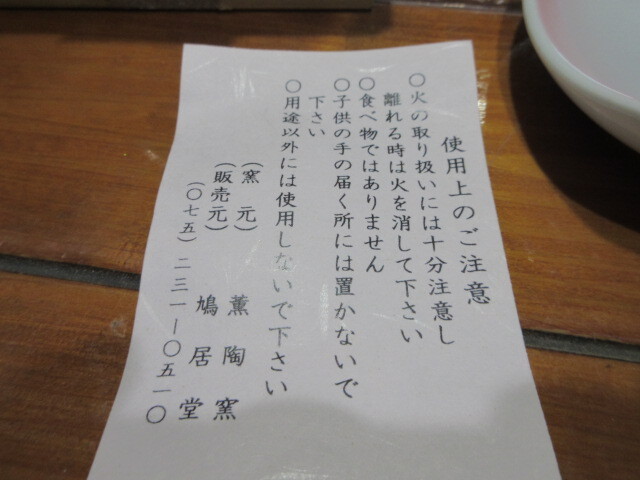 使用上のご注意
○火の取り扱いには十分注意し
離れる時は火を消して下さい
○食べ物ではありません
○子供の手の届く所には置かないで
下さい
○用途以外には使用しないで下さい
(窯元) 薫陶窯
(販売元) 鳩居堂
(〇七五)二三一ー〇五一〇